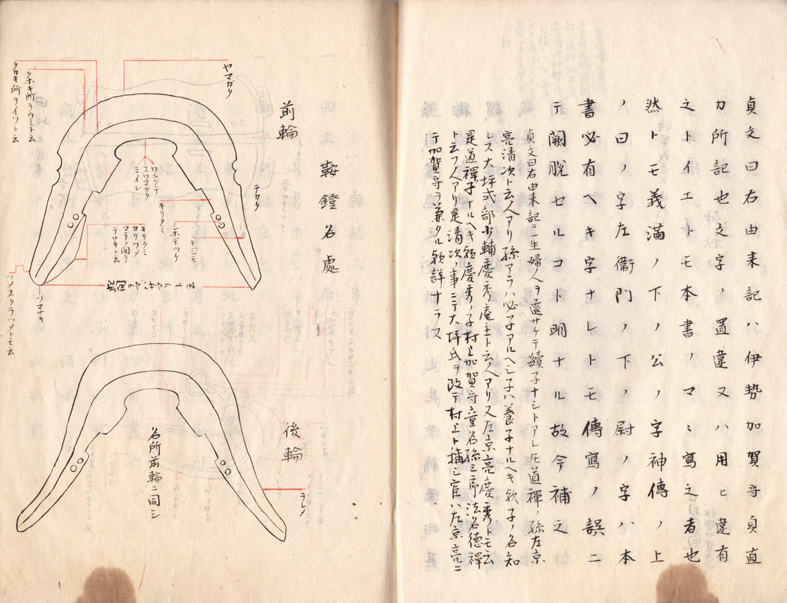 貞丈曰右由来記ハ伊勢加賀守貞直
カ所記也文字ノ置違又ハ用ヒ違有
之トイエトモ本書ノマヽ寫之者也
然トモ義満ノ下ノ公ノ字神傳ノ上
ノ曰ノ字左衞門ノ下ノ尉ノ字ハ本
書必有ヘキ字ナレトモ傳寫ノ誤ニ
テ闕脱セルコト明ナル故今補之
貞丈曰右由来記ニ一生婦人ヲ遠サケテ續子ナシトアレ𪜈道禪ノ孫左京
亮清次ト云人アリ孫アラハ必子アルヘシ子ハ養子ナルヘキ歟子ノ名知
レス大坪式部少輔慶秀庵主ト云人アリ又左京亮慶秀トモ云
是道禪子ナルヘキ歟慶秀ノ子村上加賀守
ト云フ人アリ是清次ノ事ニテ大坪氏ヲ改テ村上ト
テ加賀守ヲ兼タル歟詳ナラス
鞍鐙名處
前輪
ヤマガタ
テガタ
クホキ所ヲウミト云
タカキ所ヲイソト云
ワニグチ
スワマガタ
キリクミ
シホデツケ
キリクミ
ヨリツメ
マテノ間ヲ
ツマサキ
後輪
名所前輪ニ同シ